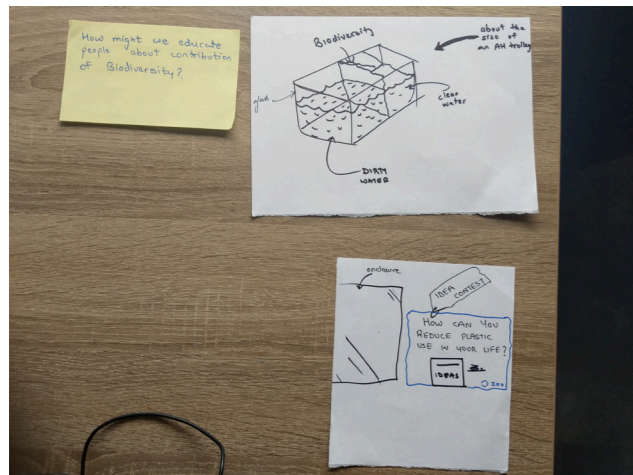 How might we educate
people about contribution
of Biodiversity?
Biodiversity
about the
size of
an AH trolley
glass
clean
water
DIRTY
WATER
enclosure
IDEA
CONTEST
HOW CAN YOU
REDUCE PLASTIC
USE IN YOUR LIFE?
IDEAS
ZOO